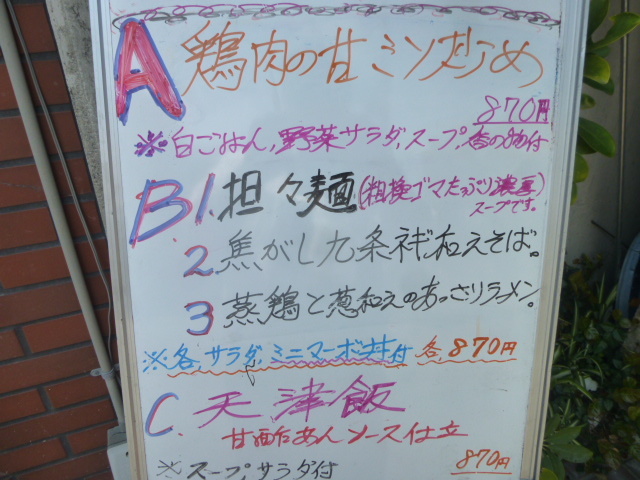 A 鶏肉の甘ミソ炒め
870円
※白ごはん、野菜サラダ、スープ、香の物付
B1. 担々麺(粗挽ゴマたっぷり濃厚)
スープです。
2. 焦がし九条ネギ和えそば。
3 蒸鶏と葱和えのあっさりラーメン。
※各、サラダ、ミニマーボ丼付 各870円
C. 天津飯
甘酢あんソース仕立
※スープ、サラダ付 870円